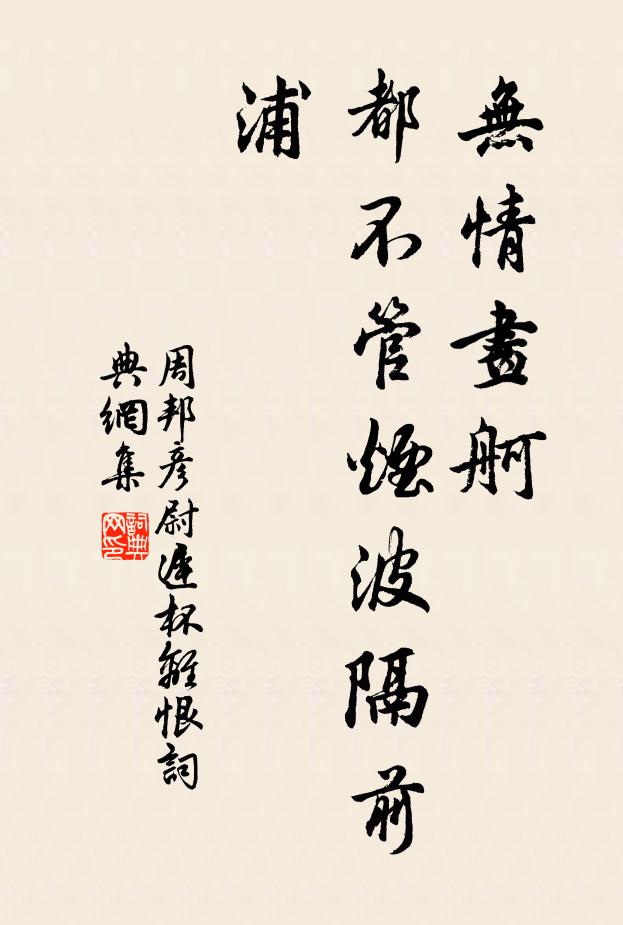 無情畫舸
都不管煙波隔前
浦
周邦彥尉遲杯離恨詞
典網集
詞典
网印